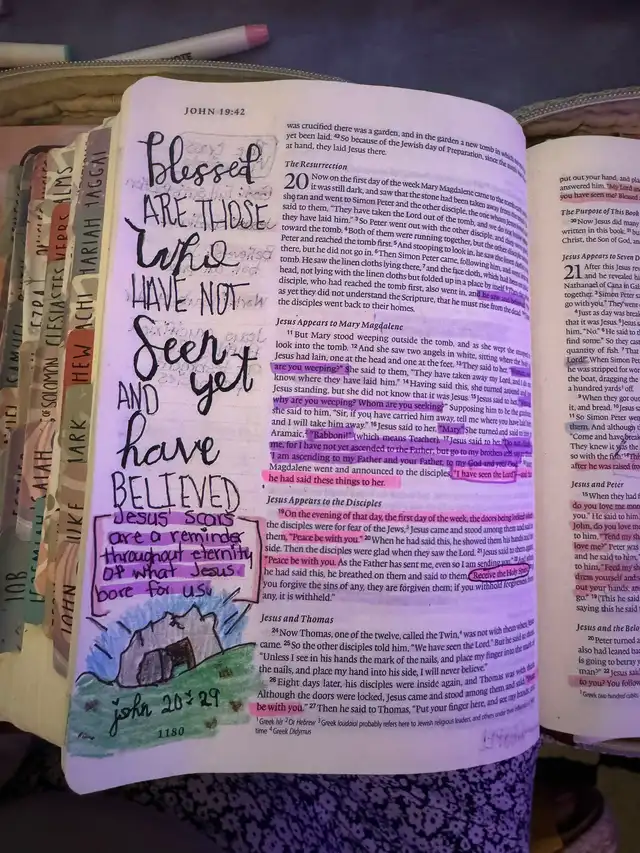 JOHN 19:42
blessed
ARE THOSE
Who
HAVE NOT
Seen
AND yet
have
BELIEVED
Jesus' Scars
are a reminder
throughout eternity
of what Jesus
bore for us.
john 20:29
1180
was crucified there was a garden, and in the garden a new tomb in which
yet been laid. 42 So because of the Jewish day of Preparation, since the
at hand, they laid Jesus there.
The Resurrection
20 Now on the first day of the week Mary Magdalene came to the tomb
it was still dark, and saw that the stone had been taken away from the
she ran and went to Simon Peter and the other disciple, the one whom Jesus
said to them, "They have taken the Lord out of the tomb, and we do not know
they have laid him." 3 So Peter went out with the other disciple, and they were
tomb. 4 Both of them were running together, but the other disciple
Peter and reached the tomb first. 5 And stooping to look in, he saw the linen
there, but he did not go in. 6 Then Simon Peter came, following him, and went
tomb. He saw the linen cloths lying there, 7 and the face cloth, which had been
head, not lying with the linen cloths but folded up in a place by itself.
disciple, who had reached the tomb first, also went in, and he saw
as yet they did not understand the Scripture, that he must rise from the dead.
the disciples went back to their homes.
Jesus Appears to Mary Magdalene
11 But Mary stood weeping outside the tomb, and as she wept she stooped
look into the tomb. 12 And she saw two angels in white, sitting where the
Jesus had lain, one at the head and one at the feet. 13 They said to her,
are you weeping?" She said to them, "They have taken away my Lord, and I do
know where they have laid him." 14 Having said this, she turned around
Jesus standing, but she did not know that it was Jesus. 15 Jesus said to her,
why are you weeping? Whom are you seeking?" Supposing him to be the
she said to him, "Sir, if you have carried him away, tell me where you have laid
and I will take him away." 16 Jesus said to her, "Mary." She turned and said
Aramaic, "Rabboni!" (which means Teacher). 17 Jesus said to her,
me, for I have not yet ascended to the Father; but go to my brothers
'I am ascending to my Father and your Father, to my God and your God.'"
Magdalene went and announced to the disciples, "I have seen the Lord"
he had said these things to her.
Jesus Appears to the Disciples
19 On the evening of that day, the first day of the week, the doors being locked
the disciples were for fear of the Jews, Jesus came and stood among them and said
them, "Peace be with you." 20 When he had said this, he showed them his hands and
side. Then the disciples were glad when they saw the Lord. 21 Jesus said to them
"Peace be with you. As the Father has sent me, even so I am sending you."
he had said this, he breathed on them and said to them, "Receive the Holy
you forgive the sins of any, they are forgiven them; if you withhold forgiveness
any, it is withheld."
Jesus and Thomas
24 Now Thomas, one of the twelve, called the Twin, 4 was not with them when Jesus
came. 25 So the other disciples told him, "We have seen the Lord." But he said
"Unless I see in his hands the mark of the nails, and place my finger into the
the nails, and place my hand into his side, I will never believe."
26 Eight days later, his disciples were inside again, and Thomas was with
Although the doors were locked, Jesus came and stood among them and said,
be with you." 27 Then he said to Thomas, "Put your finger here, and see my
1 Greek his 2 Or Hebrew 3 Greek Ioudaioi probably refers here to Jewish religious leaders, and others under their
time 4 Greek Didymus
put out your hand, and
answered him, "My Lord
you have seen me? Blessed
The Purpose of This
30 Now Jesus did many
written in this book;
Christ, the Son of God,
Jesus Appears to Seven
21 After this Jesus
and he revealed
Nathanael of Cana in
together. 3 Simon Peter
go with you." They went
4 Just as day was
that it was Jesus.
him, "No." 6 He said to
find some." So they cast
quantity of fish. 7 That
Lord!" When Simon Peter
he was stripped for work
the boat, dragging the
a hundred yards off.
9 When they got out
it, and bread. 10 Jesus
11 So Simon Peter went
them. And although
"Come and have
They knew it was the
so with the fish.
after he was raised
Jesus and Peter
15 When they had
do you love me more
you." He said to him,
John, do you love me
him, "Tend my
love me?" Peter was
and he said to him,
to him, "Feed my
dress yourself and
out your hands, and
go." 19 (This he said
saying this he said
Jesus and the
20 Peter turned
also had leaned back
is going to betray
man?" 22 Jesus said
to you? You follow
EZRA
OF SOLOMON
ECLESIASTES
HARIAH
HAGGAI
MARK
LUKE
JOHN
JOB